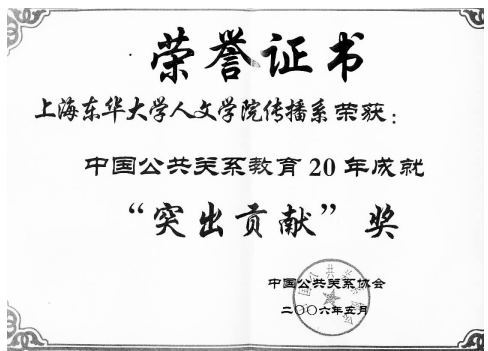 荣誉证书
上海东华大学人文学院传播系荣获：
中国公共关系教育20年成就
“突出贡献”奖
中国公共关系协会
二〇〇六年五月